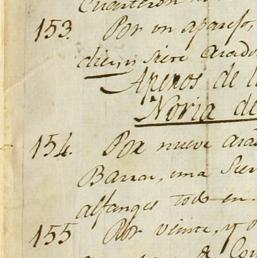 Cuarteron
153. Por un aparejo,
diez, i siete arado
Aperos de la
Noria de
154. Por nueve ara
Barra, una Sier
alfanges todo en
155 Por veinte, y